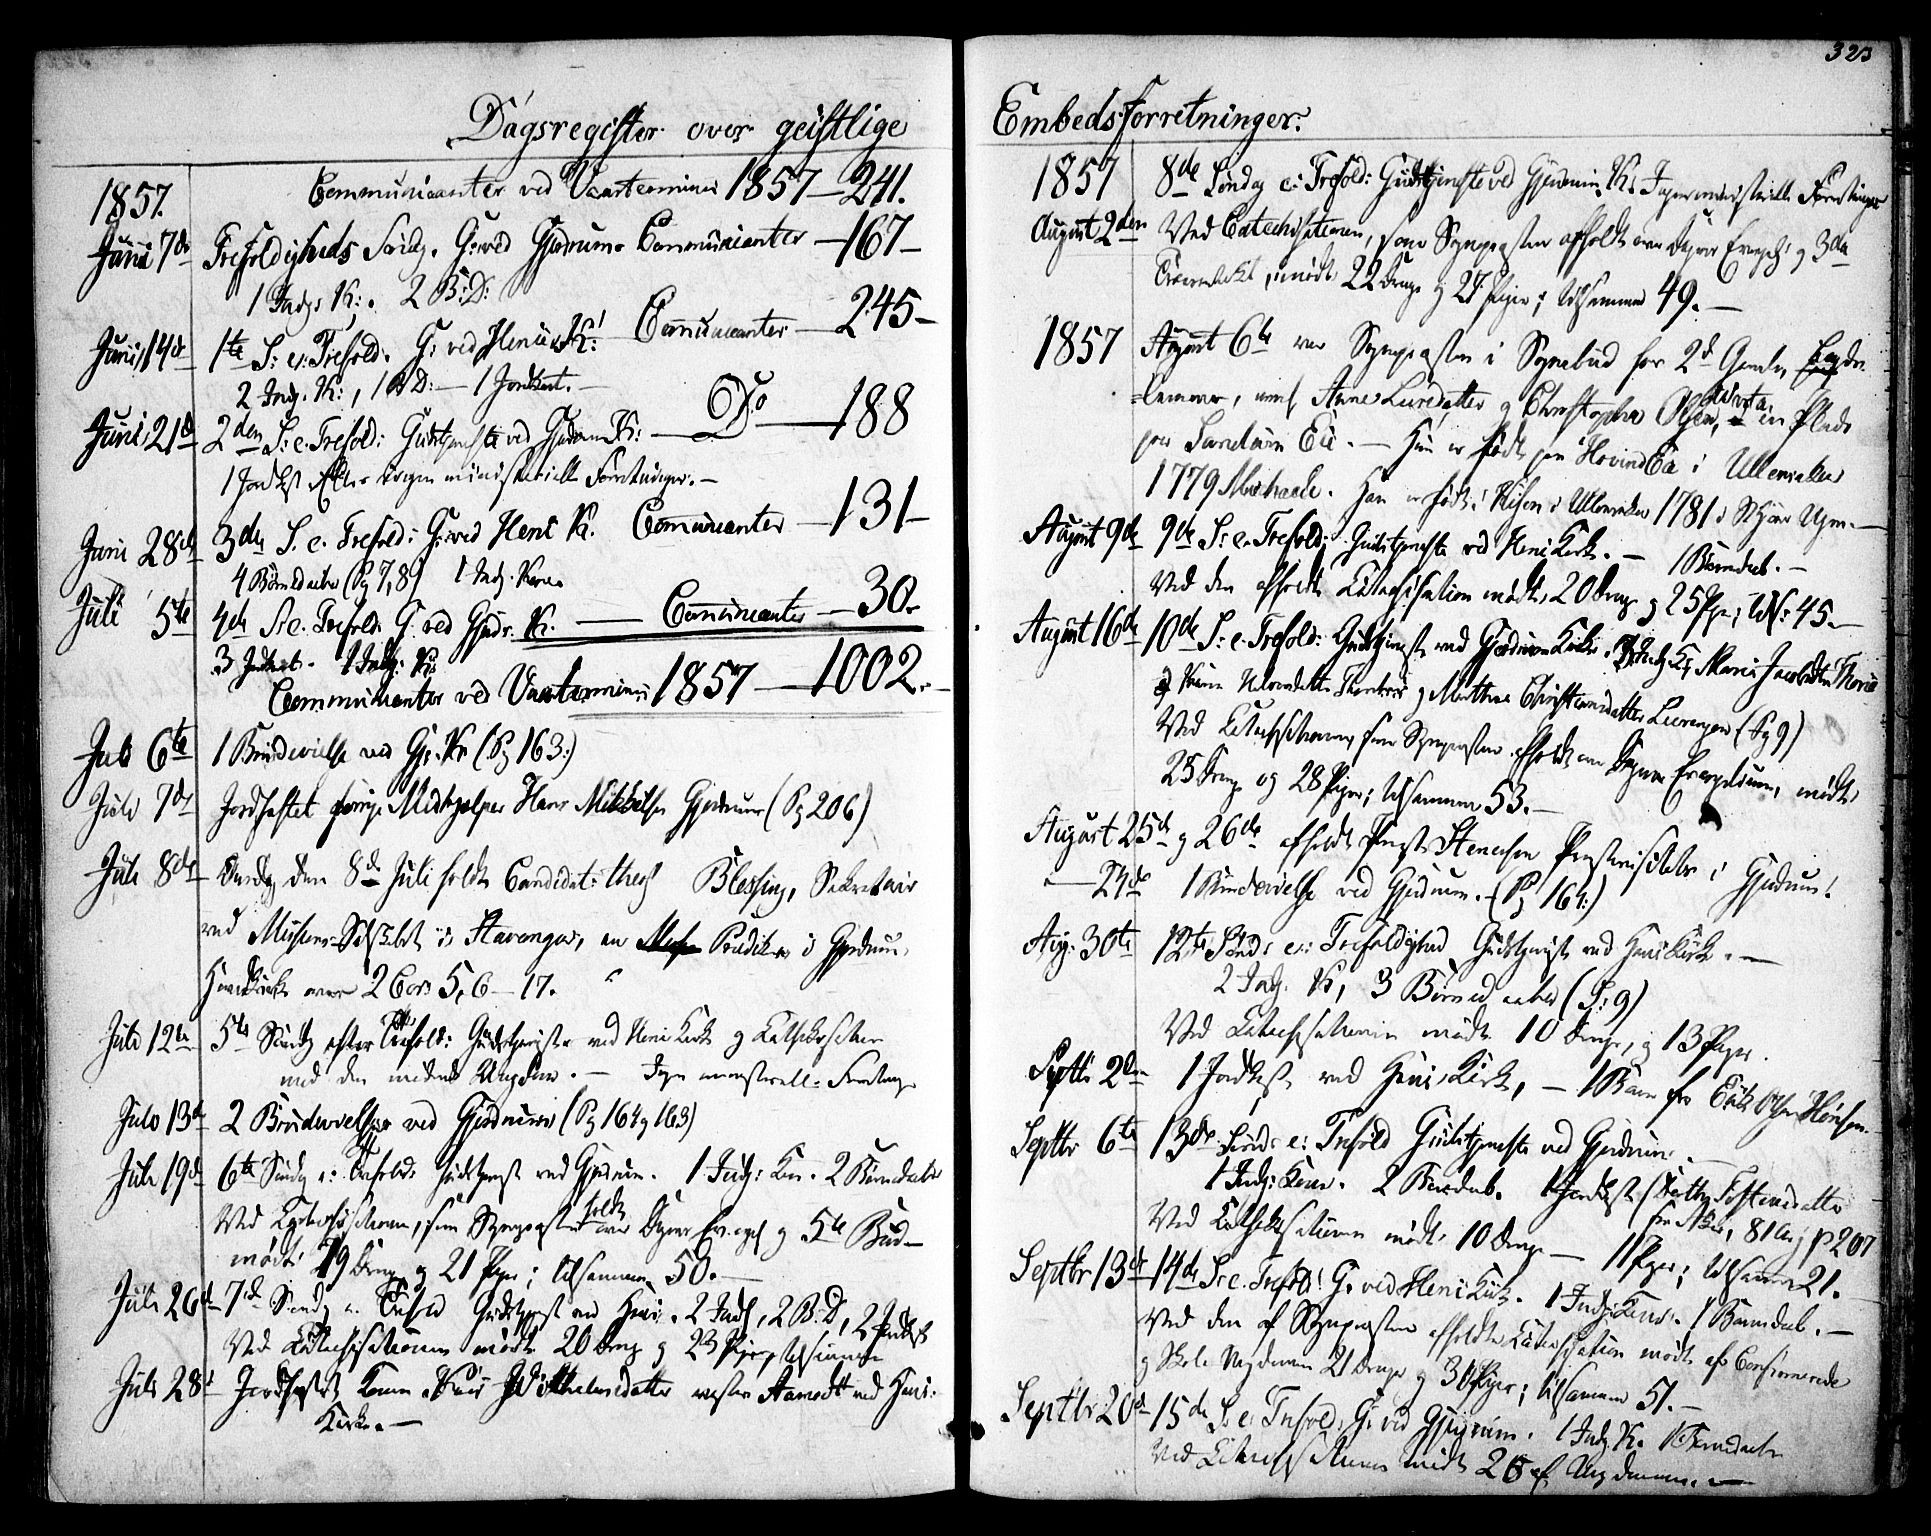 Dagsregister over geistlige
1857.
Communicanter ved Vaarterminen 1857 — 241.
Juni 7de Trefoldigheds Søndg. G: ved Gjerdrum. Communicanter — 167 —
1 Indg. K:. 2 B: D:
Juni 14de 1te S: e: Trefold. G: ved Heni K: Communicanter — 245 —
2 Indg. K:, 1 B D: — 1 Jordkast. —
Juni 21de 2den S: e. Trefold: Gudstjeneste ved Gjerdrum K: — Do — 188
1 Jordkst. Ellers ingen ministerielle Forretninger. —
Juni 28de 3die S. e. Trefold: G: ved Heni K. Communicanter — 131 —
4 Børnedaabe (Pg 7, 8) 1 Indg. Kone
Juli 5te 4de S: e. Trefold. G. ved Gjerdr. K. — Communicanter — 30.
3 Jordkast. 1 Indg: K:
Communicanter ved Vaarterminen 1857 — 1002. —
Juli 6te 1 Brudevielse ved Gj: K: (Pg 163:)
Juli 7de Jordfæstet forrige Medhjelper Hans Mikkelsen Gjerdrum (Pg 206)
Juli 8de Onsdg den 8de Juli holdt Candidat: theol Blessing, Sekretair
ved Missions-Selskabet i Stavanger, en Prædiken i Gjerdrum
Hovedkirke over 2 Cor: 5, 6 – 17.
Juli 12te 5te Søndg efter Trefold: Gudstjeneste ved Heni Kirke og Katekisation
med den mødende Ungdom. — Ingen ministeriell: Forretning
Juli 13de 2 Brudevielser ved Gjerdrum (Pg 164 og 163)
Juli 19de 6te Søndg e: Trefold: Gudstjenest ved Gjerdrum. 1 Indg: Kone. 2 Børnedaabe
Ved Katekisationen, som Sognepræsten holdt over Dagens Evangel og 5te Bud —
mødte 29 Drenge og 21 Piger; tilsammen 50. —
Juli 26de 7de Søndg e. Trefold Gudstjenest ved Heni. 2 Indg, 2 B: D, 2 Jordkst
Ved Katechisationen mødte 20 Drenge og 23 Piger, tilsammen
Juli 28de Jordfæstet Konen Wilhelmsdatter ved Heni
Kirke. —
323
Embedsforretninger.
1857 8de Søndag e: Trefold: Gudstjeneste ved Gjerdrum K: Ingen ministerielle Forretninger
August 2den Ved Catechisationen, som Sognepræsten afholdt over Dagens Evangel: og 3die
mødte 22 Drenge og 27 Piger; tilsammen 49. —
1857 August 6te var Sognepræsten i Sognebud for 2de Gamle,
lemmer, nemlig Anne Larsdatter og Christopher Olsen, en Plads
paa Eie. — Hun er født paa Hovind Eie i Ullensaker
1779 Michaeli. Han er født i Ullensaker 1781
August 9de 9de S: e. Trefold: Gudstjeneste ved Heni Kirke. — 1 Børnedaab. —
Ved den afholdte Katechisation mødte 20 Drenge og 25 Piger; tils: 45. —
August 16de 10de S: e: Trefold: Gudstjeneste ved Gjerdrum Kirke. 3 Indg: K: Maria Jacobsdtr
og Mathea Christensdatter (Pg 9)
Ved Katechisationen, som Sognepræsten afholdt over Dagens Evangelium, mødte
25 Drenge og 28 Piger; tilsammen 53. —
August 25de og 26de afholdt Provst Stenersen Provstevisitats i Gjerdrum.
— 27de 1 Brudevielse ved Gjerdrum. — (Pg 164:)
Aug. 30te 12te Sønd: e: Trefoldighed Gudstjenest ved Heni Kirke. —
2 Indg. K, 3 Børnedaabe (S: 9)
Ved Katechisationen mødte 10 Drenge, og 13 Piger.
Septbr 2den 1 Jordkst ved Heni Kirke, — 1 Barn fra
Septbr 6te 13de Sønd: e: Trefold Gudstjeneste ved Gjerdrum. —
1 Indg: Kone. 2 Børnedaab. 1 Jordkst 81 Aar p 207
Ved Katechisationen mødte 10 Drenge — 11 Piger; tilsammen 21. —
Septbr 13de 14de S: e. Trefold: G: ved Heni Kirke. 1 Indg: Kone. 1 Børnedaab. —
Ved den af Sognepræsten afholdte Katechisation mødte af Confirmerede
og Skole Ungdommen 21 Drenge og 30 Piger; tilsammen 51. —
Septbr 20de 15de S. e: Trefold: G: ved Gjerdrum. 1 Indg. K. 1 Børnedaab
Ved Katechisationen mødte 26 af Ungdommen. —